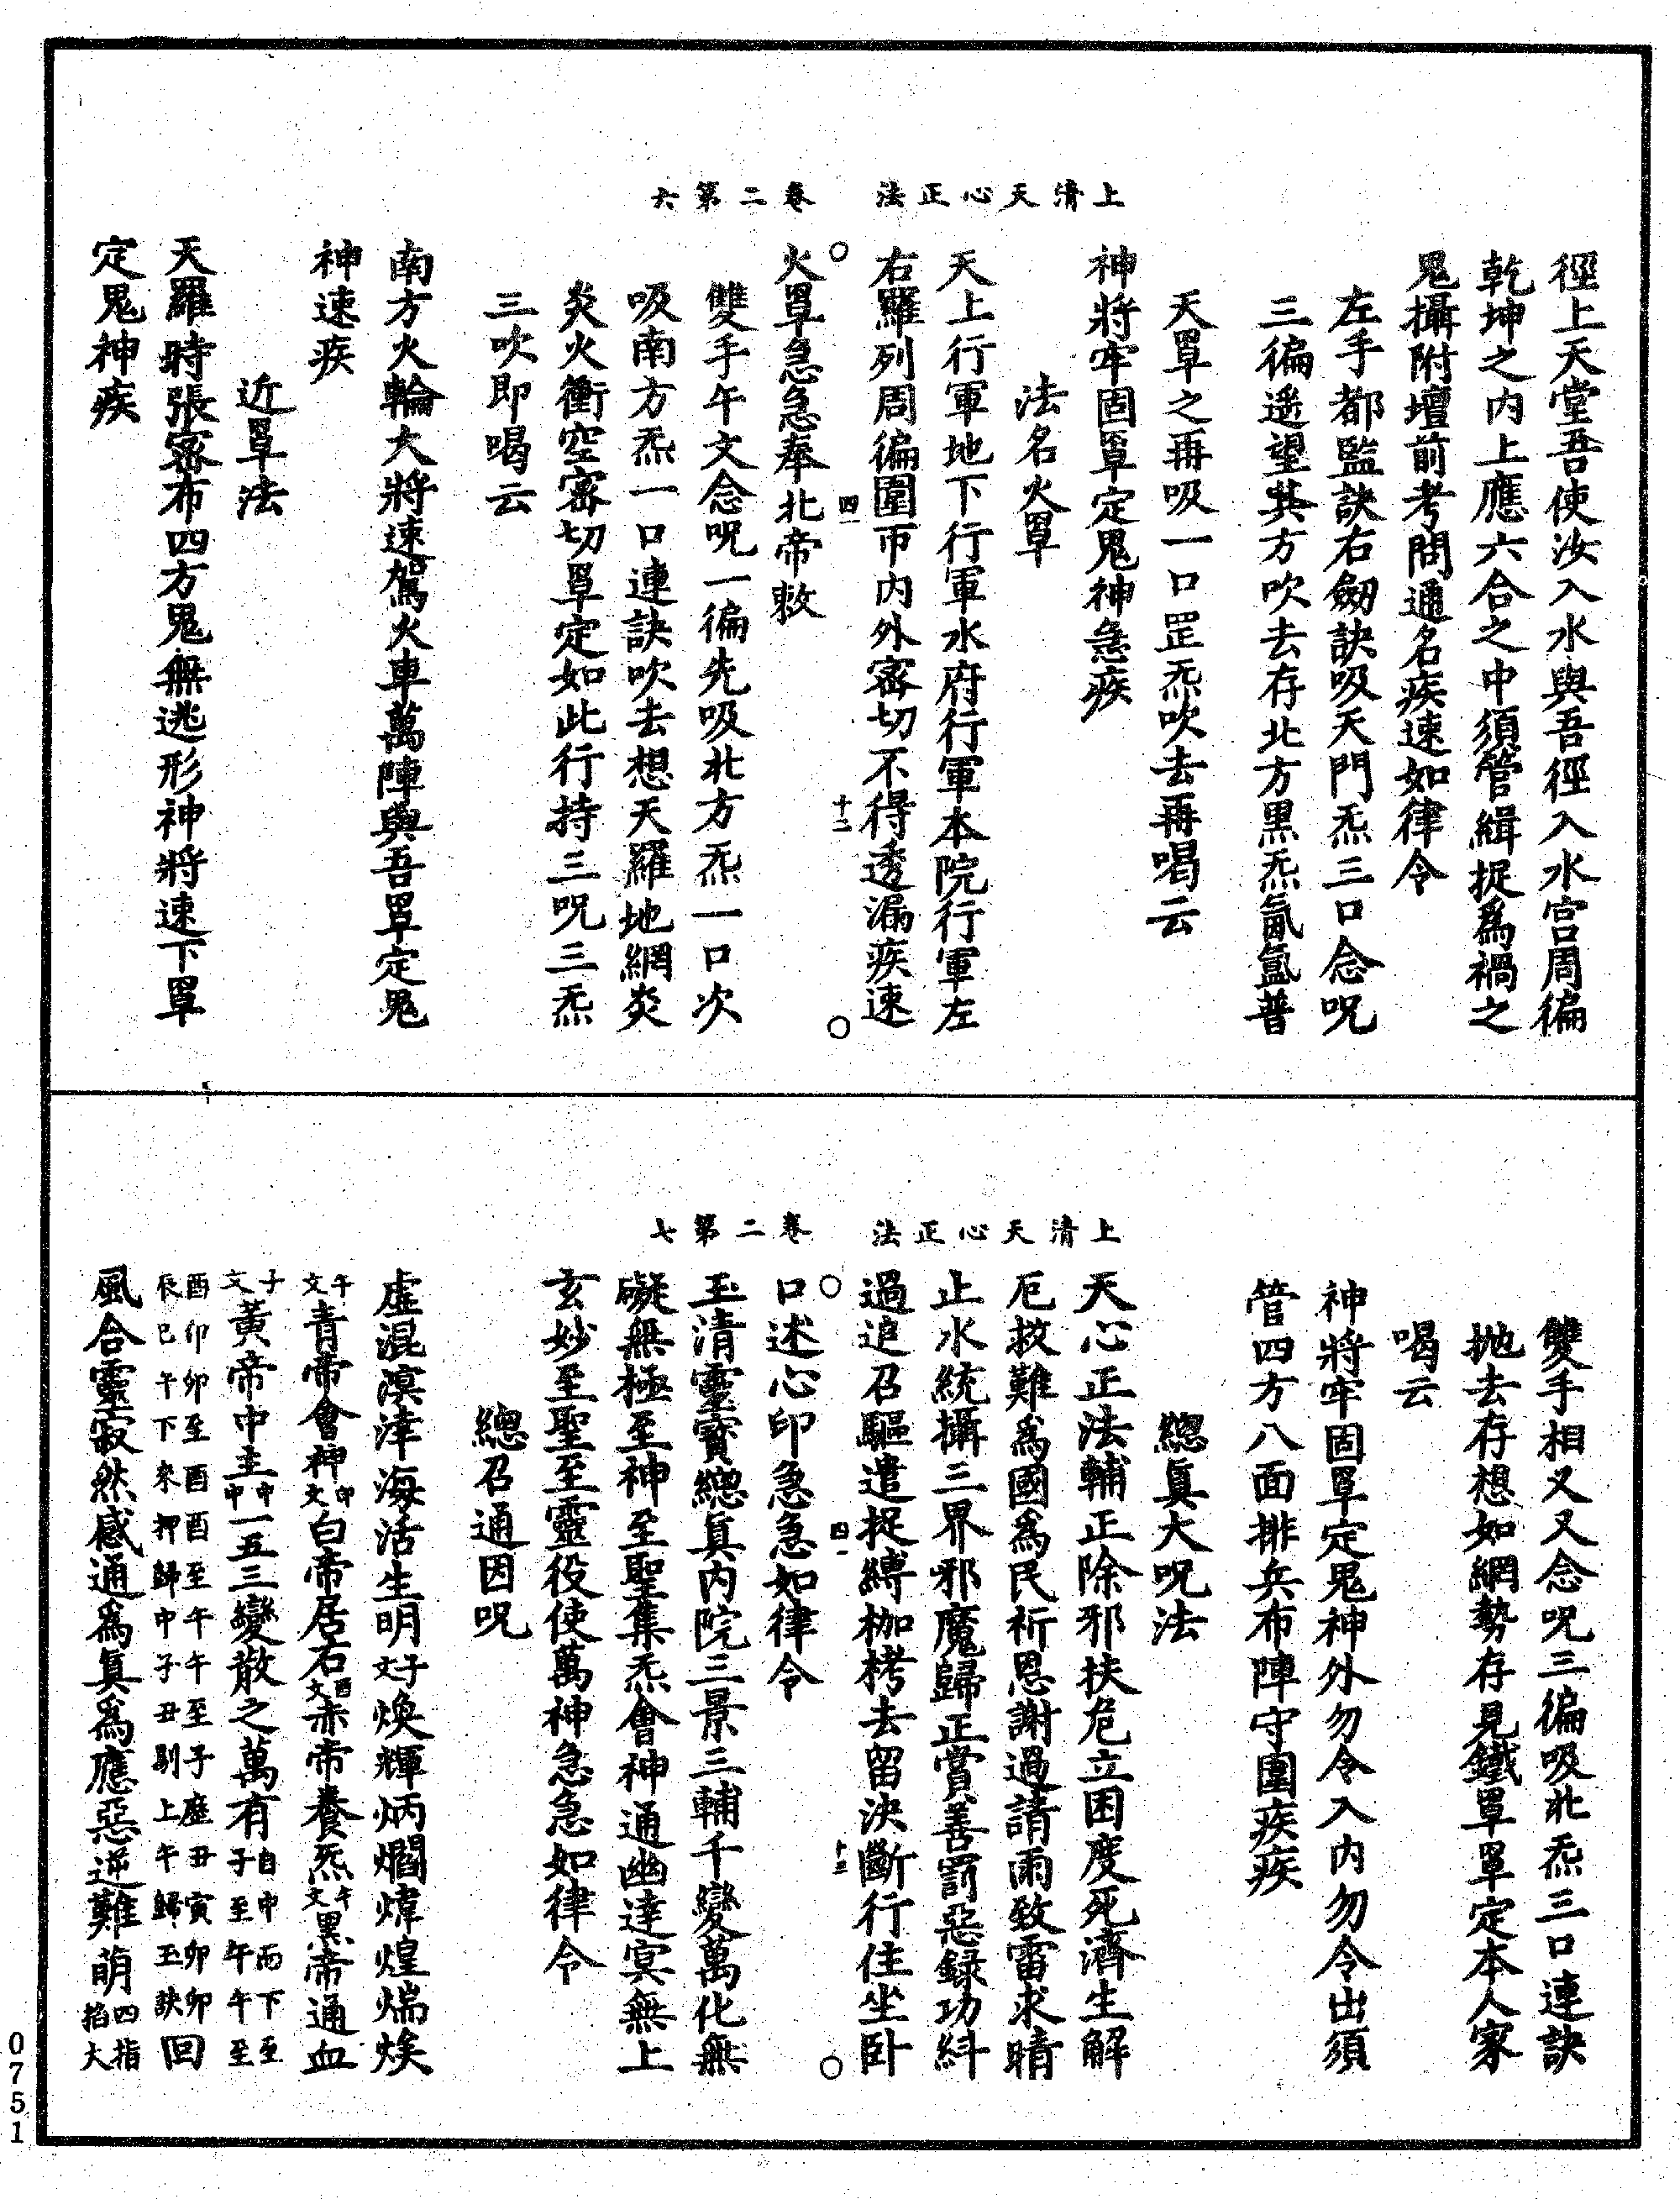 上清天心正法　卷二第六
徑上天堂吾使汝入水與吾徑入水宮周徧
乾坤之内上應六合之中須管緝捉爲禍之
鬼攝附壇前考問通名疾速如律令
左手都監訣右劒訣吸天門炁三口念呪
三徧遥望其方吹去存北方黒炁氤氳普
天罩之再吸一口罡炁吹去再喝云
神將牢固罩定鬼神急疾
法名火罩
天上行軍地下行軍水府行軍本院行軍左
右羅列周徧圍帀内外宻切不得透漏疾速
四一　十二
火罩急急奉北帝敕
雙手午文念呪一徧先吸北方炁一口次
吸南方炁一口連訣吹去想天羅地網炎
炎火衝空宻切罩定如此行持三呪三炁
三吹即喝云
南方火輪大將速駕火車萬陣與吾罩定鬼
神速疾
近罩法
天羅時張宻布四方鬼無逃形神將速下罩
定鬼神疾
上清天心正法　卷二第七
雙手相叉又念呪三徧吸北炁三口連訣
抛去存想如網勢存見鐵罩罩定本人家
喝云
神將牢固罩定鬼神外勿令入内勿令出須
管四方八面排兵布陣守圍疾疾
總眞大呪法
天心正法輔正除邪扶危立困度死濟生解
厄救難爲國爲民祈恩謝過請雨致雷求晴
止水統攝三界邪魔歸正賞善罰惡録功糾
過追召驅遣捉縛枷栲去留決斷行住坐卧
四一　十三
口述心印急急如律令
玉清靈寳總眞内院三景三輔千變萬化無
礙無極至神至聖集炁會神通幽達㝠無上
玄妙至聖至靈役使萬神急急如律令
總召通因呪
虚混溟涬海活生明子文煥輝炳爓煒煌煓㷟
午文青帝會神卯文白帝居右酉文赤帝養炁午文黒帝通血
子文黄帝中主中中一五三變散之萬有自中而下至子至午午至
酉卯卯至酉酉至午午至子庭丑寅卯卯辰巳午下來押歸中子丑剔上午歸玉訣回
風合靈寂然感通爲眞爲應惡逆難萌四指掐大
0751